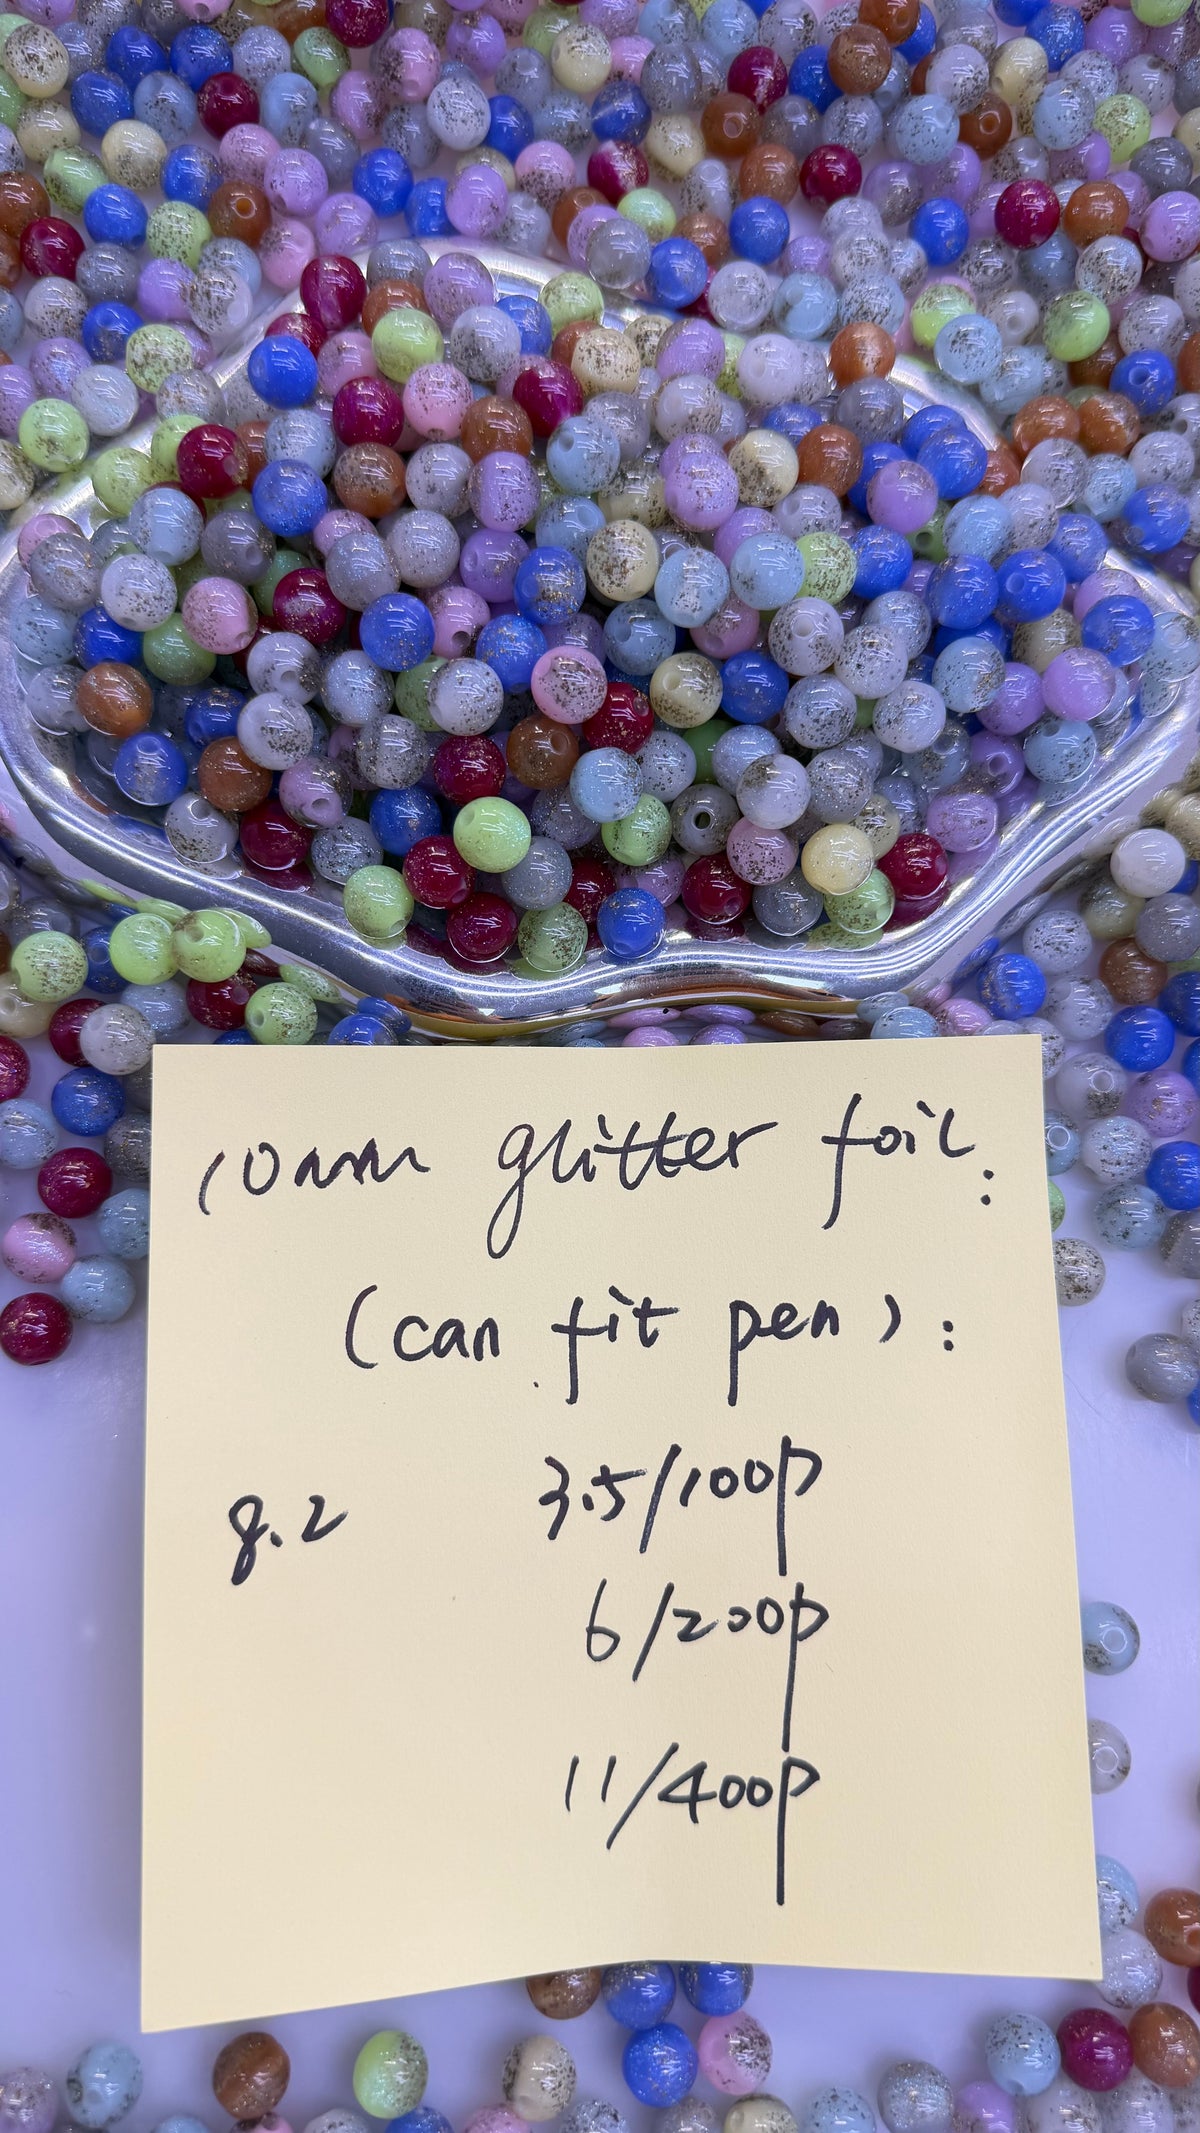 10mm glitter foil:
(can fit pen):
8.2 3.5/100p
6/200p
11/400p